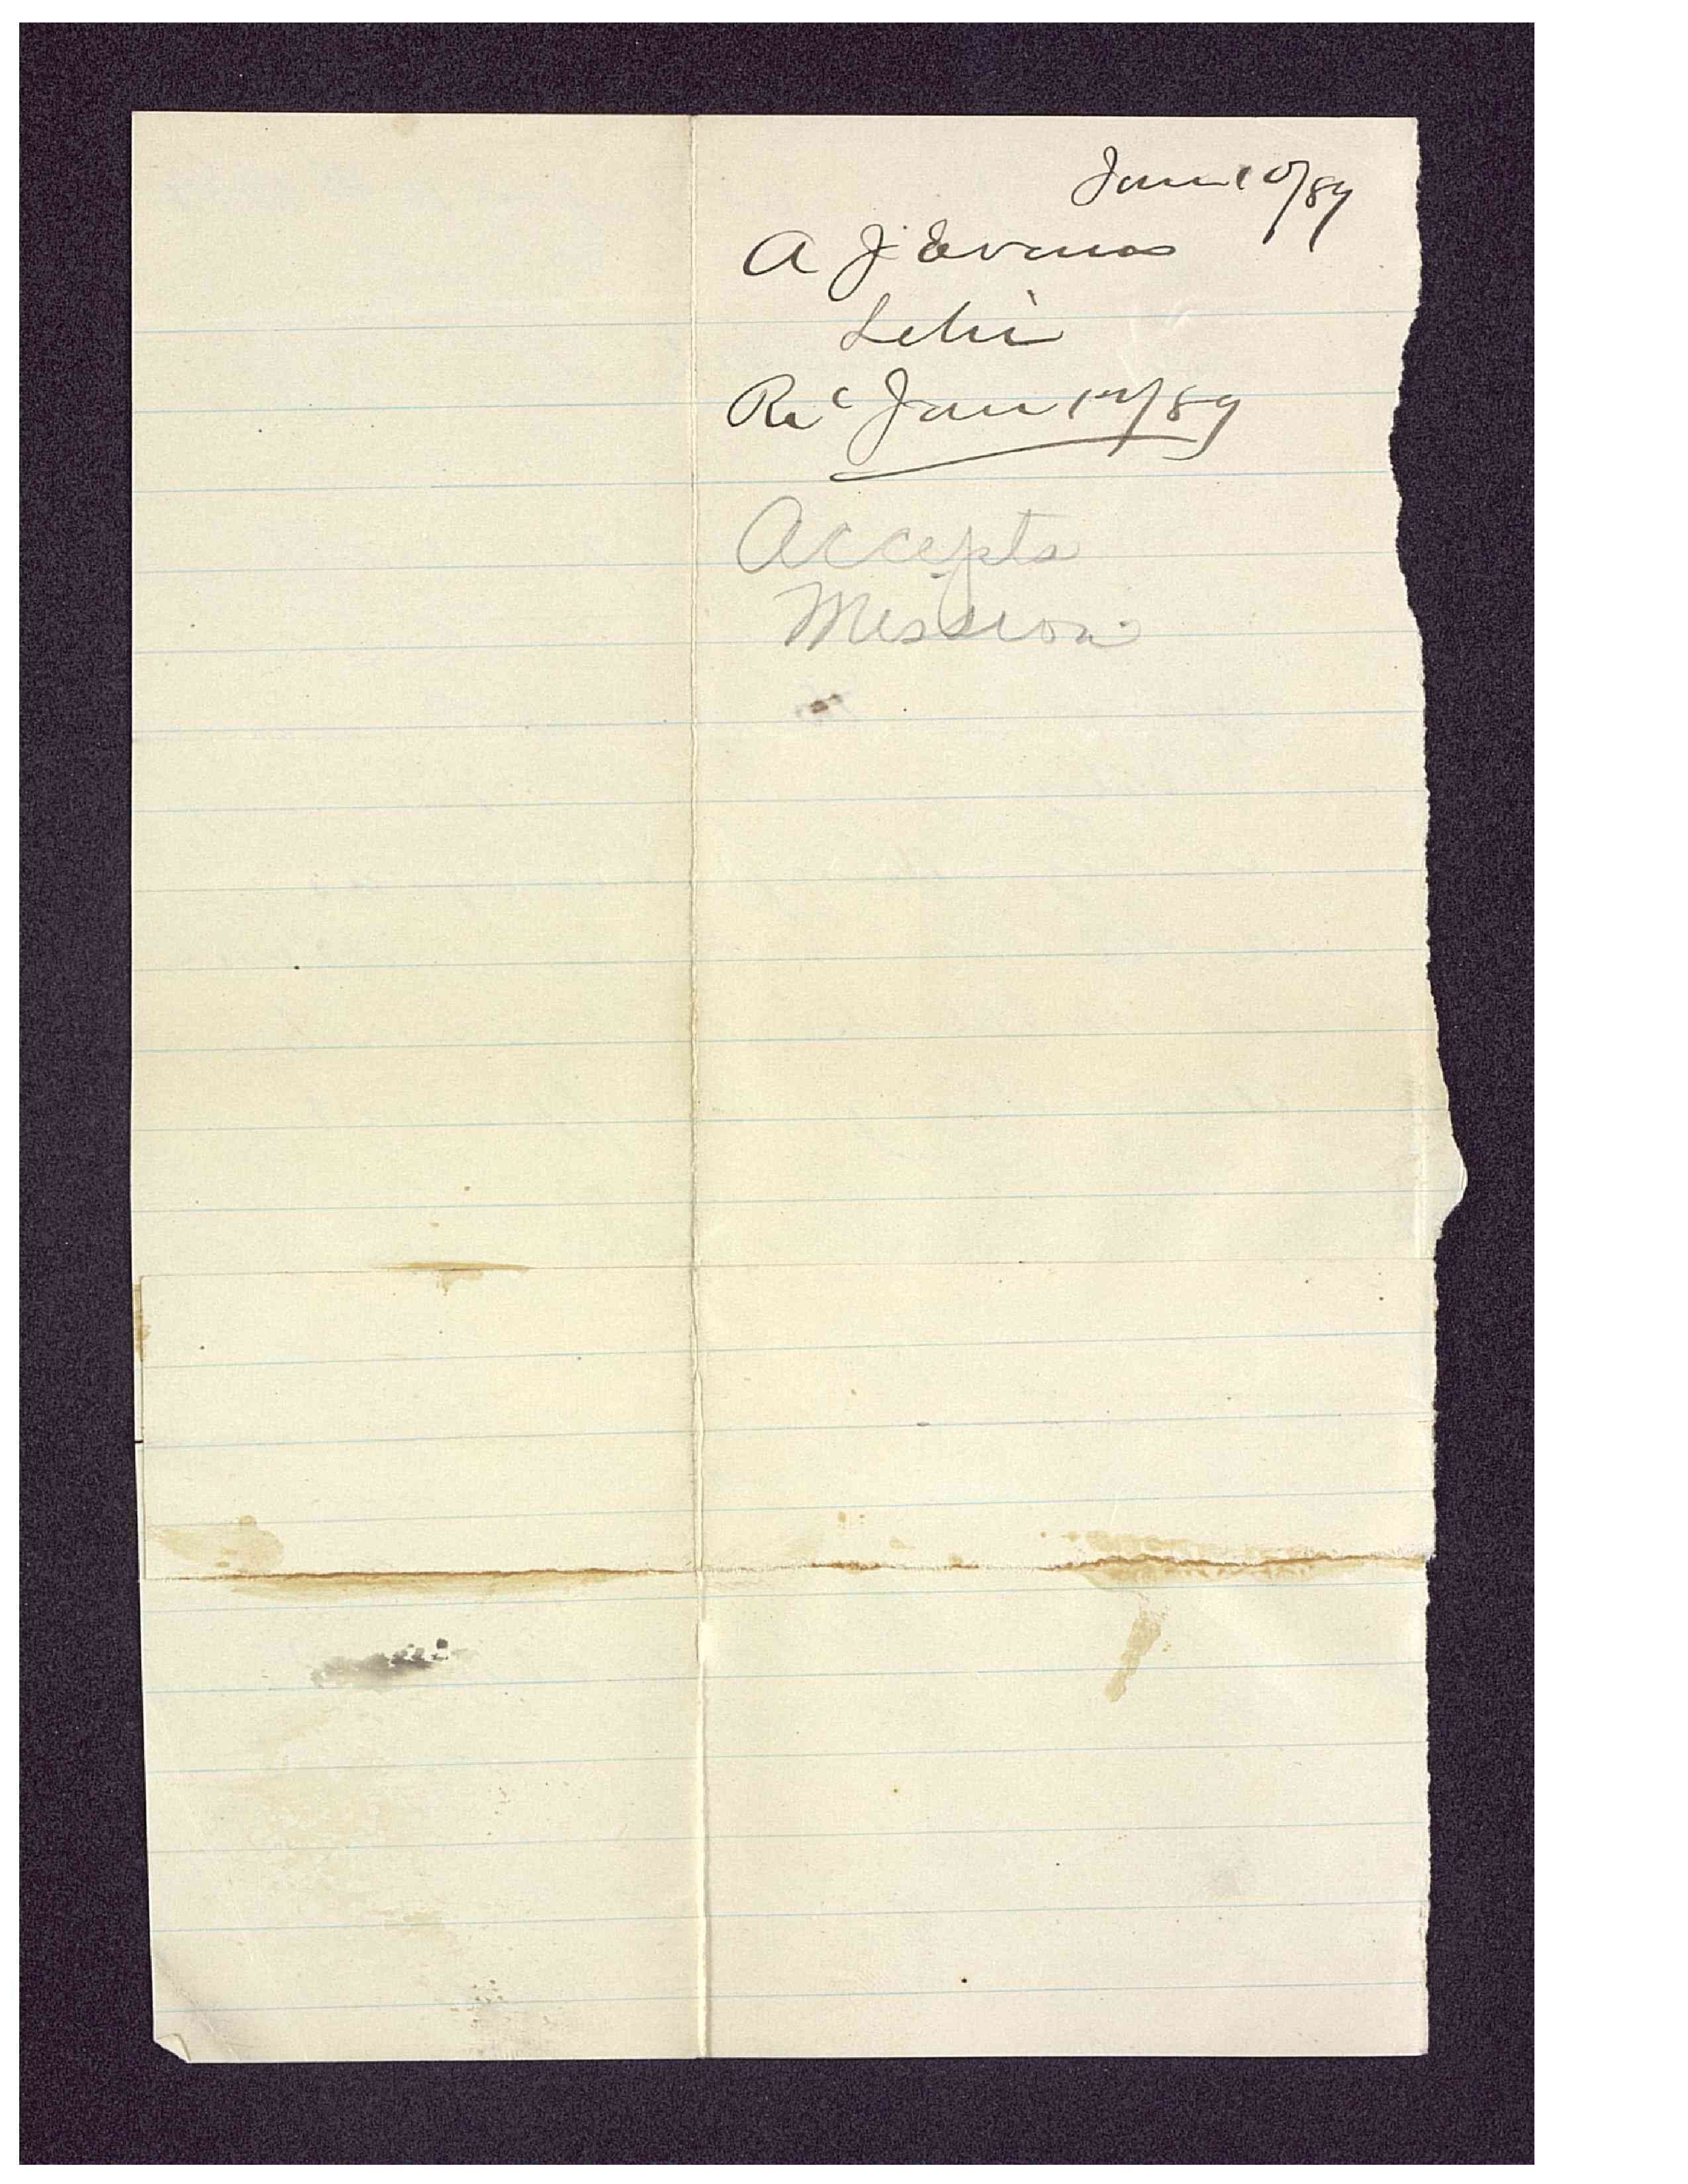 Jan 10/89
A J Evans
Lehi
Rec Jan 12/89
Accepts
Mission